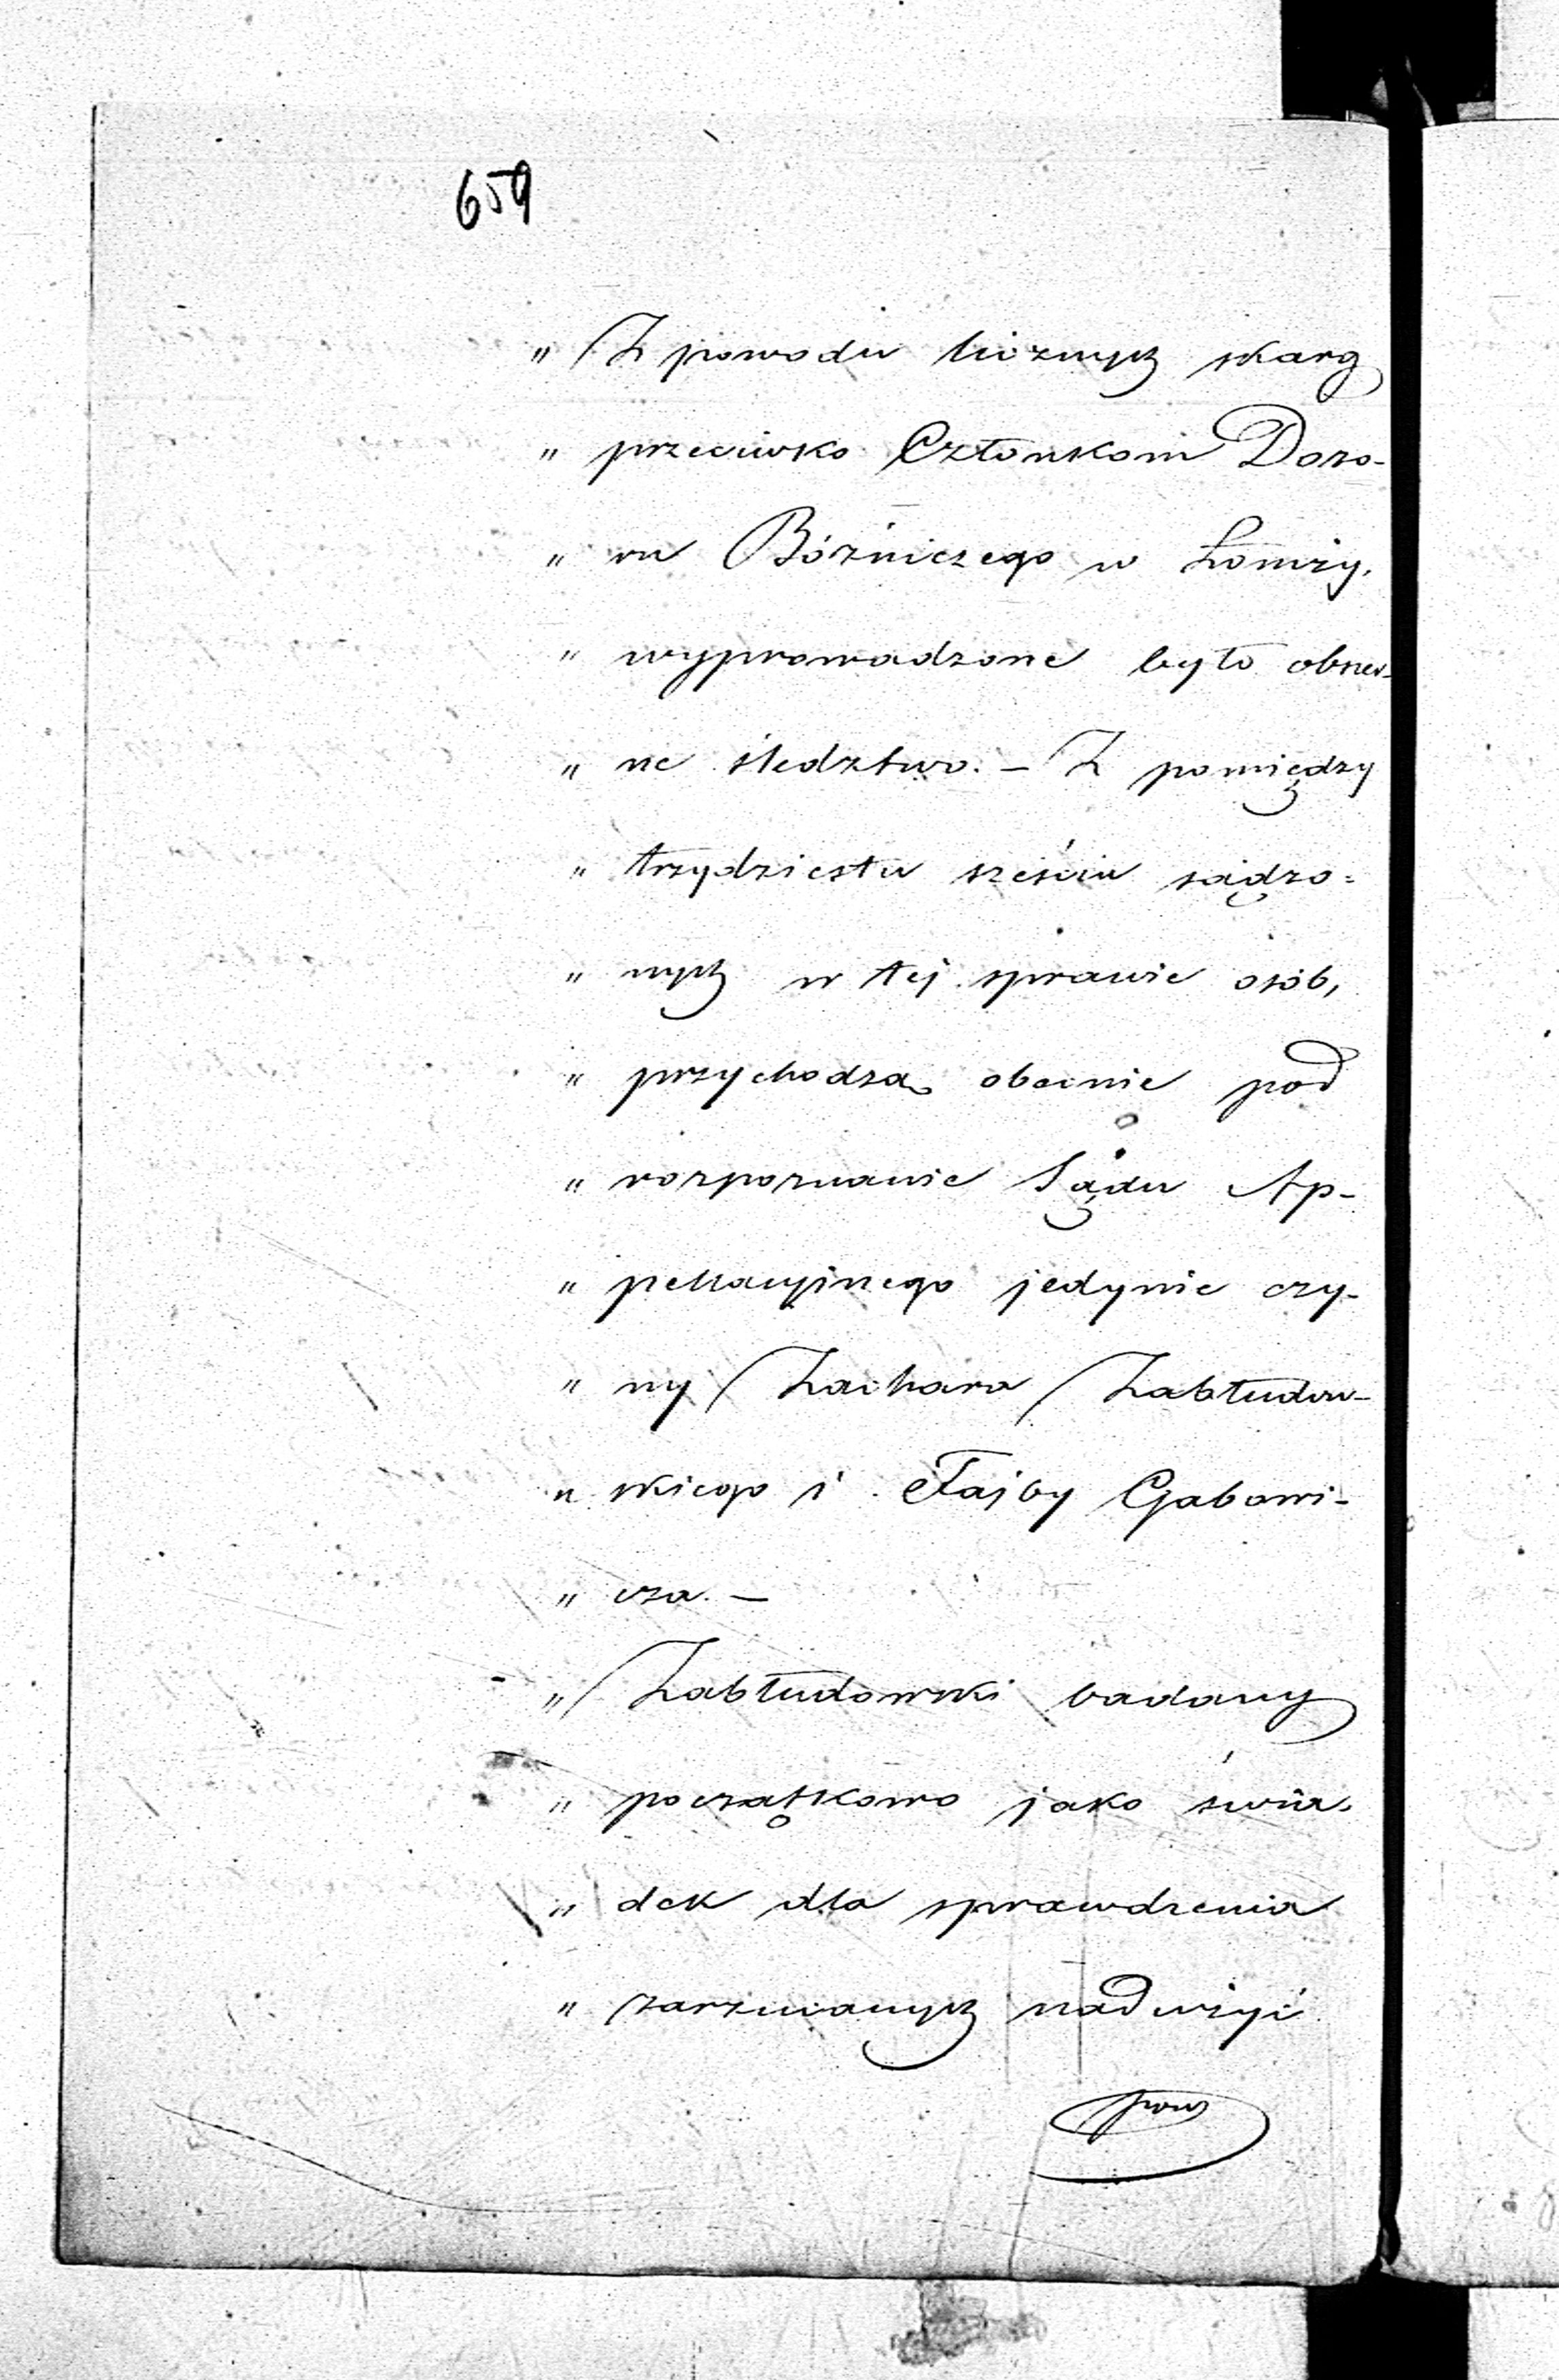 659
„ Z powodu licznych skarg
„ przeciwko Członkom Dozo-
„ ru Bóżniczego w Łomży,
„ wyprowadzone było obszer-
„ ne śledztwo. – Z pomiędzy
„ trzydziestu sześciu sądzo-
„ nych w tej sprawie osób,
„ przychodzą obecnie pod
„ rozpoznanie Sądu Ap-
„ pellacyjnego jedynie czy-
„ ny Zachara Zabłudow-
„ skiego i Fajby Gabowi-
„ cza. –
„ Zabłudowski badany
„ początkowo jako świa-
„ dek dla sprawdzenia
„ zarzucanych nadużyć